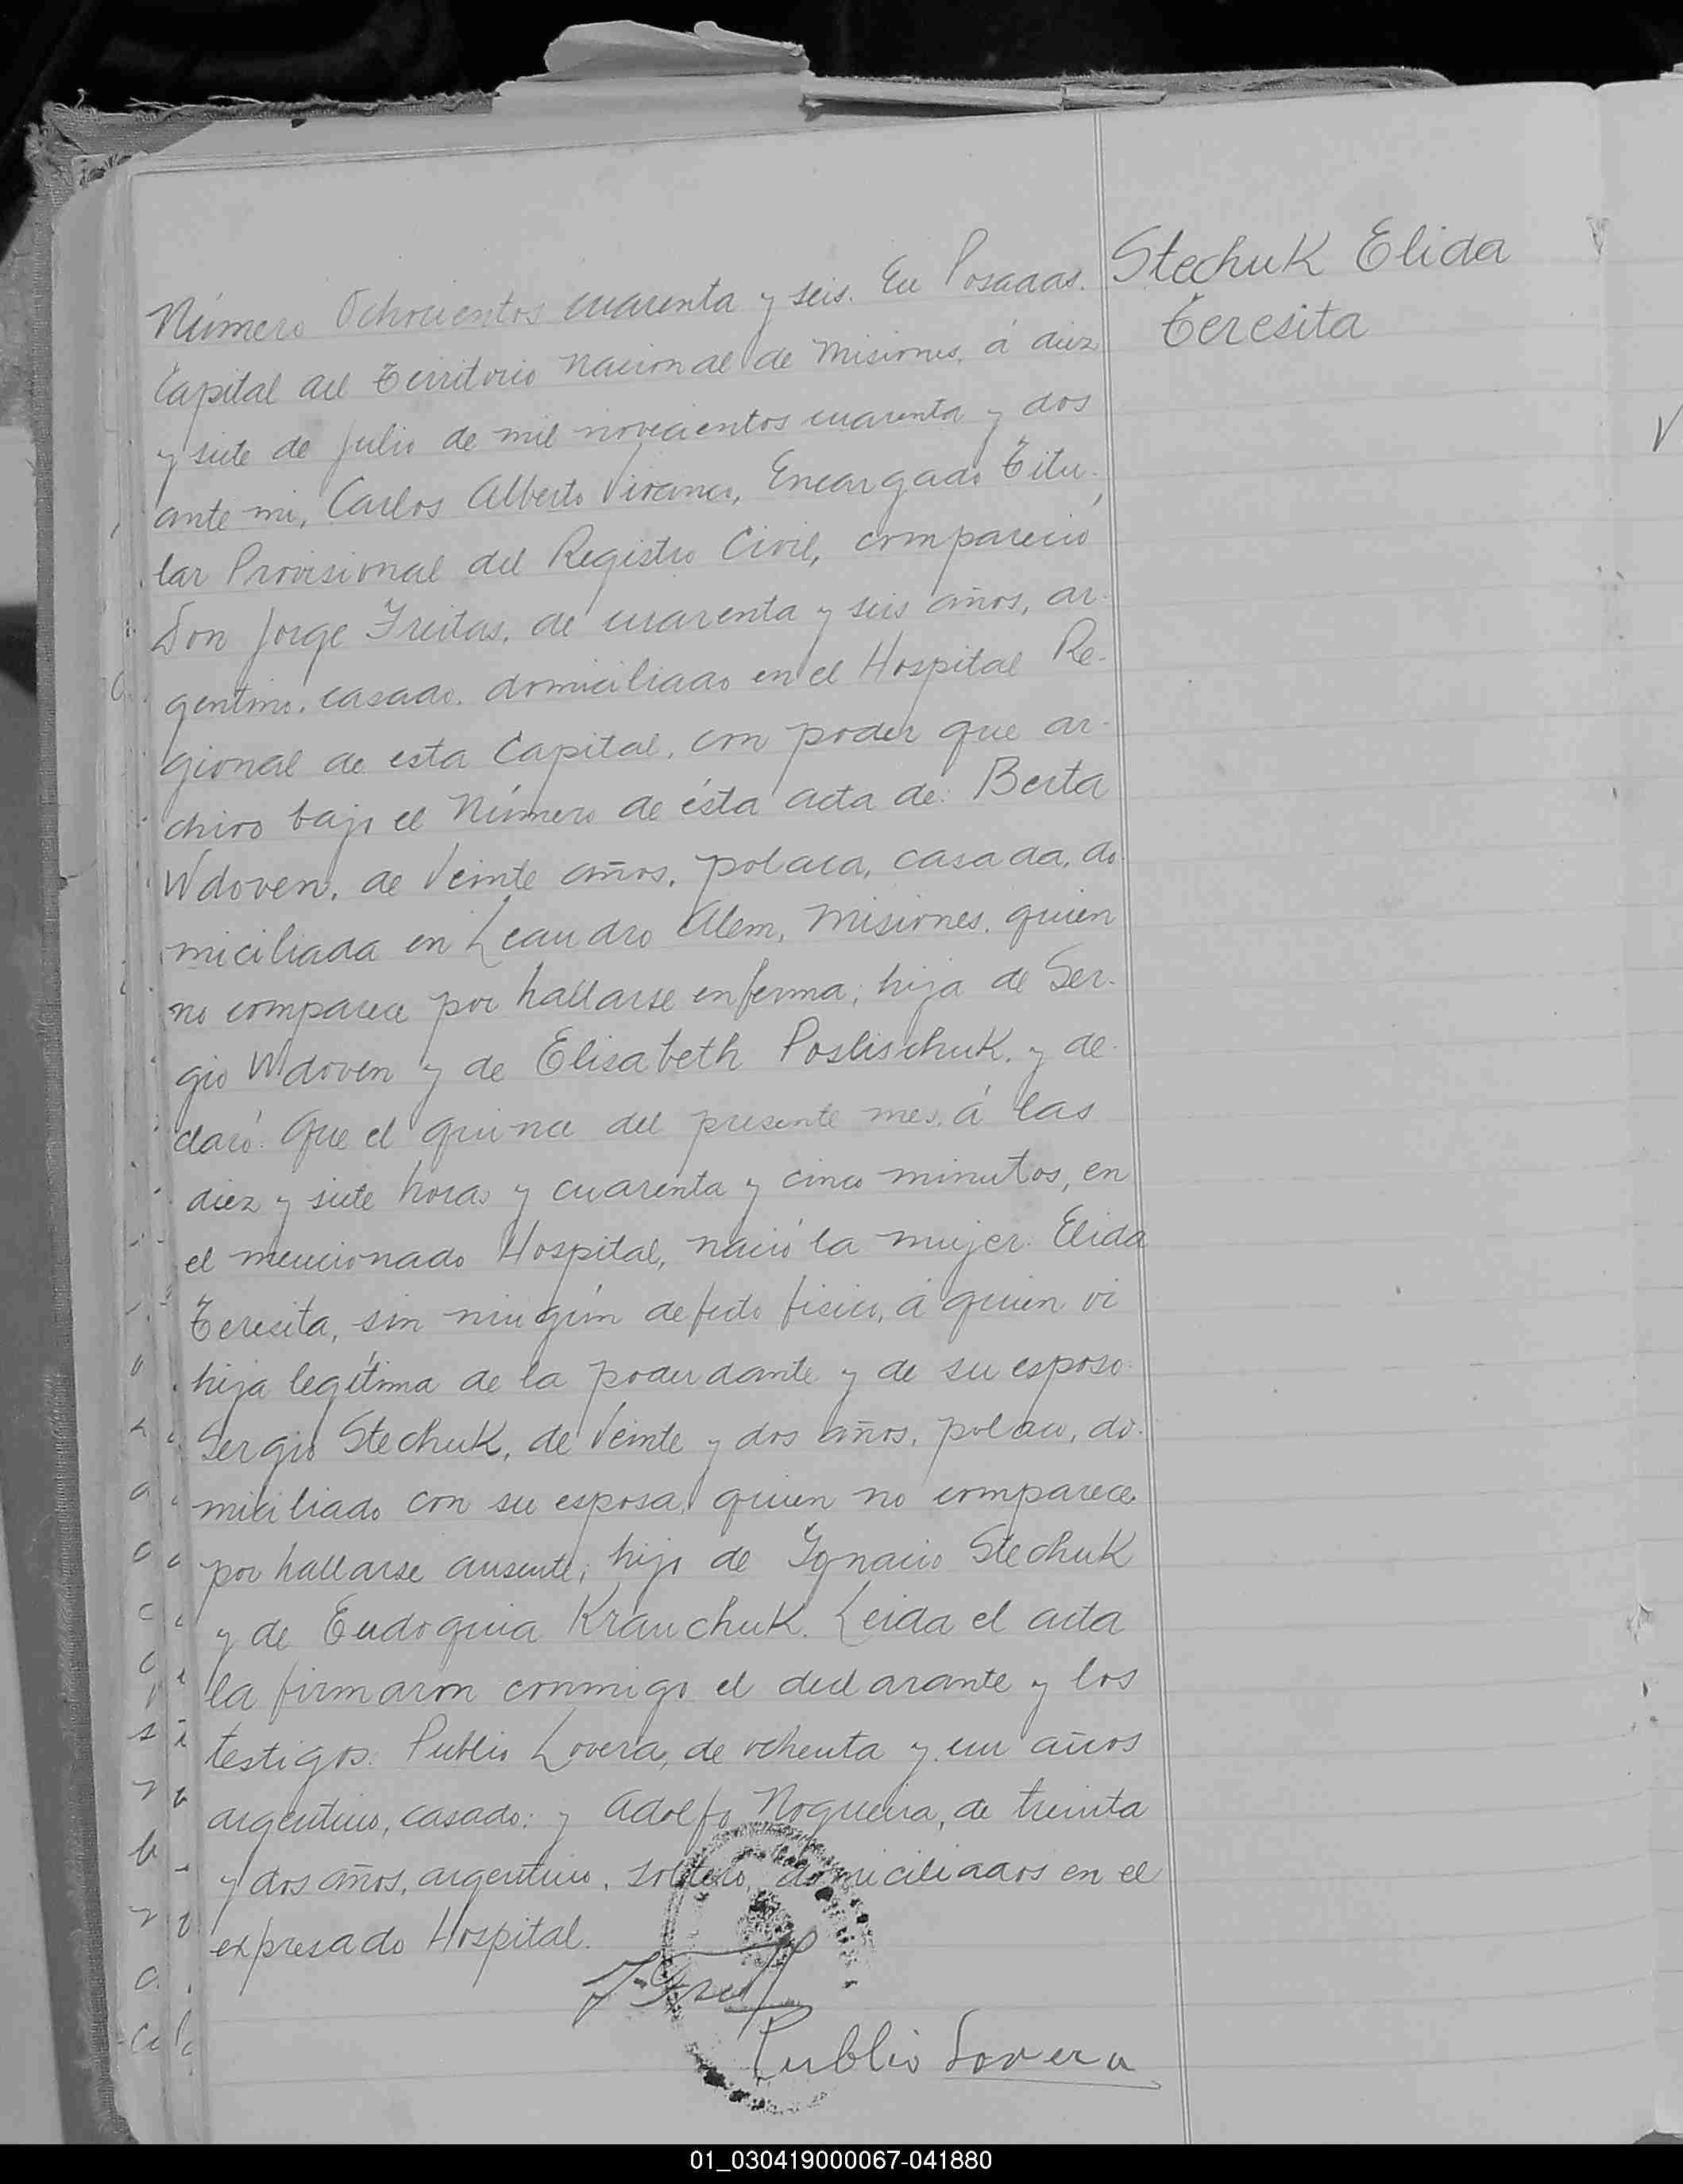 Stechuk Elida
Teresita
Número Ochocientos cuarenta y seis. En Posadas.
Capital del Territorio Nacional de Misiones, á diez
y siete de Julio de mil novecientos cuarenta y dos
ante mi, Carlos Alberto Vivanco, Encargado Titu-
lar Provisional del Registro Civil, compareció
Don Jorge Freitas, de cuarenta y seis años, ar-
gentino, casado, domiciliado en el Hospital Re-
gional de esta Capital, con poder que ar-
chivo bajo el Número de ésta acta de: Berta
Wdoven, de Veinte años, polaca, casada, do-
miciliada en Leandro Alem, Misiones, quien
no comparece por hallarse enferma; hija de Ser-
gio Wdoven y de Elisabeth Poslischuk, y de-
claró: Que el quince del presente mes, á las
diez y siete horas y cuarenta y cinco minutos, en
el mencionado Hospital, nació la mujer: Elida
Teresita, sin ningún defecto fisico, á quien vi
hija legítima de la poderdante y de su esposo:
Sergio Stechuk, de Veinte y dos años, polaco, do-
miciliado con su esposa, quien no comparece
por hallarse ausente; hijo de Ignacio Stechuk
y de Eudoquia Kranchuk. Leida el acta
la firmaron conmigo el declarante y los
testigos: Publio Lovera, de ochenta y un años
argentino, casado; y Adolfo Nogueira, de treinta
y dos años, argentino, soltero, domiciliados en el
expresado Hospital.
Publio Lovera
01_030419000067-041880